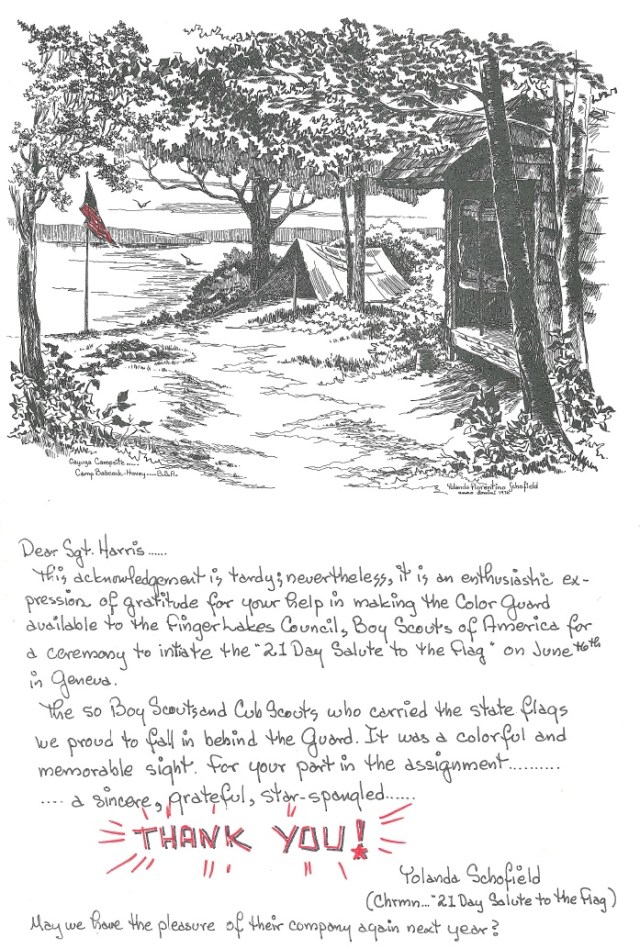 Cayuga Campsite.....
Camp Babcock-Hovey.....B.S.A.
Yolanda Fiorentino Schofield
anno domini
Dear Sgt. Harris......
This acknowledgement is tardy; nevertheless, it is an enthusiastic ex-
pression of gratitude for your help in making the Color Guard
available to the Finger Lakes Council, Boy Scouts of America for
a ceremony to intiate the "21 Day Salute to the Flag" on June 16th
in Geneva.
The 50 Boy Scouts and Cub Scouts who carried the state flags
we proud to fall in behind the Guard. It was a colorful and
memorable sight. For your part in the assignment..........
.... a sincere, grateful, star-spangled......
THANK YOU!
Yolanda Schofield
(Chrmn... "21 Day Salute to the Flag)
May we have the pleasure of their company again next year?